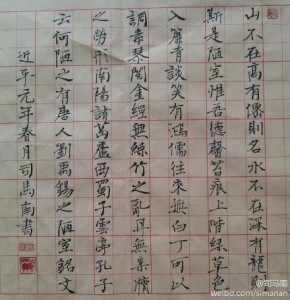 山不在高有僊則名水不在深有龍則
斯是陋室惟吾德馨苔痕上階綠草色
入簾青談笑有鴻儒往來無白丁可以
調素琴閱金經無絲竹之亂耳無案牘
之勞形南陽諸葛廬西蜀子雲亭孔子
云何陋之有唐人劉禹錫之陋室銘文
近平元年春月司馬南書
@司马南
weibo.com/simanan